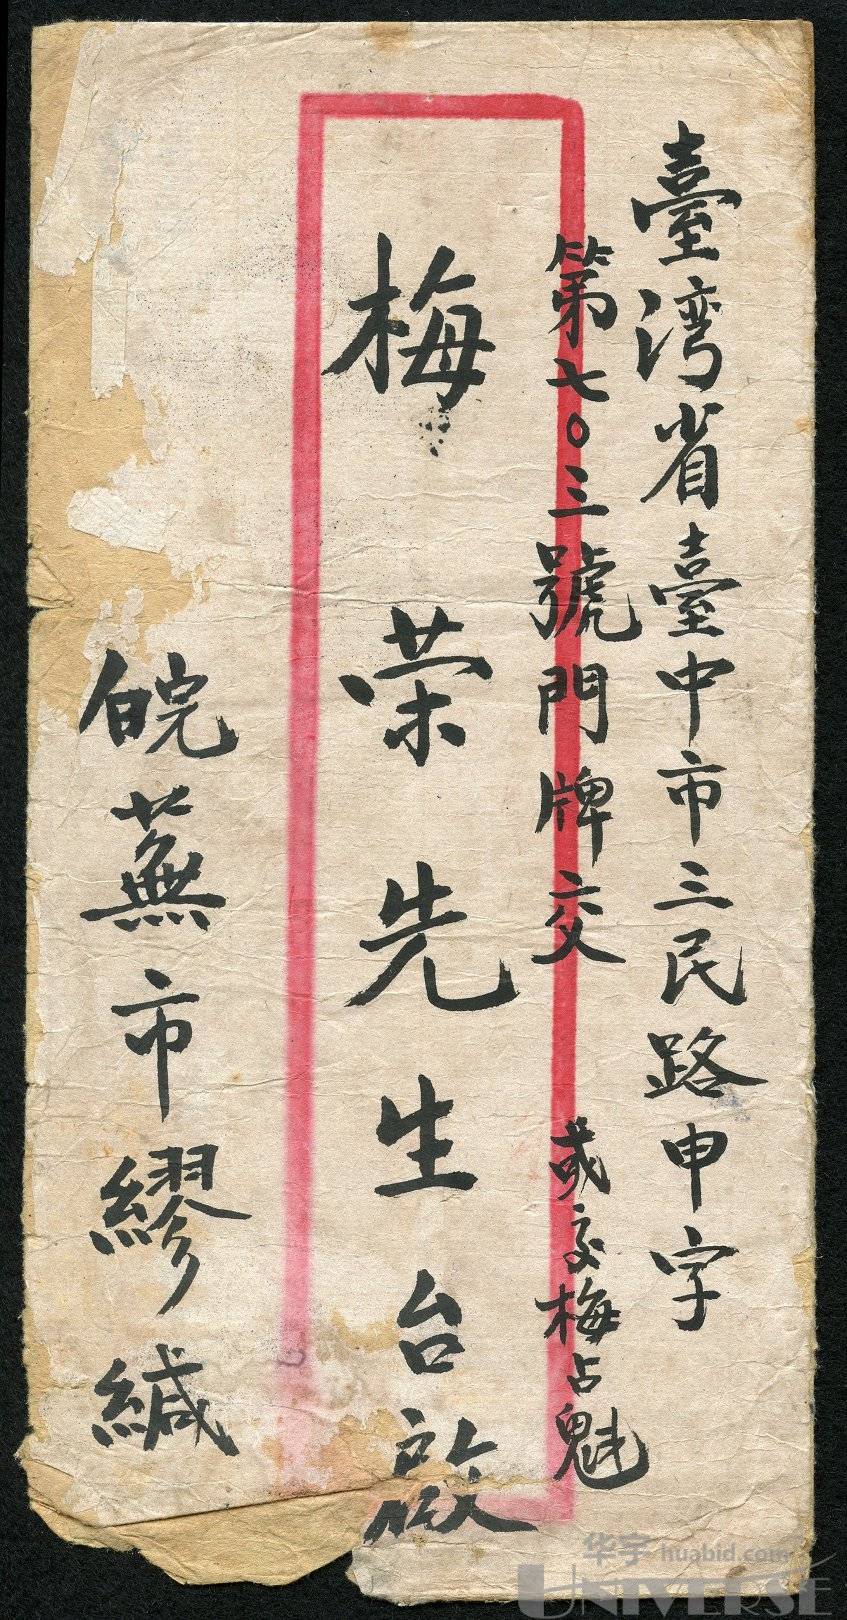 臺湾省臺中市三民路申字
第七〇三號門牌交 或交梅占魁
梅荣先生台啟
皖蕪市繆緘
华宇 huabid.com
UNIVERSE